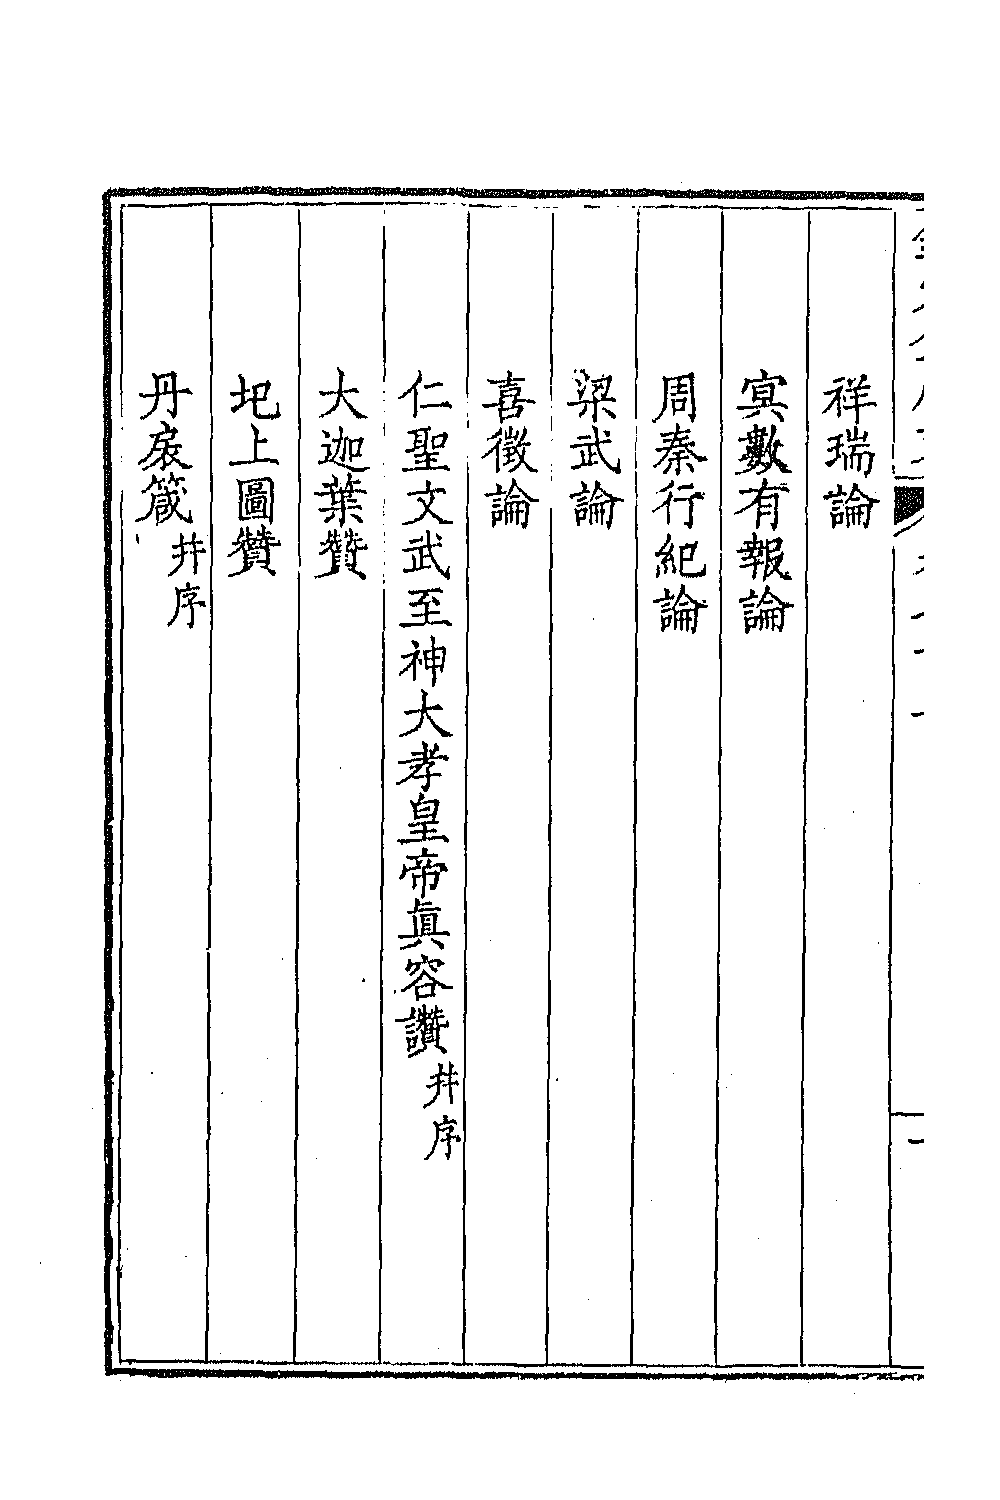 祥瑞論
冥數有報論
周秦行紀論
梁武論
喜徵論
仁聖文武至神大孝皇帝眞容讚幷序
大迦葉贊
圯上圖贊
丹扆箴幷序